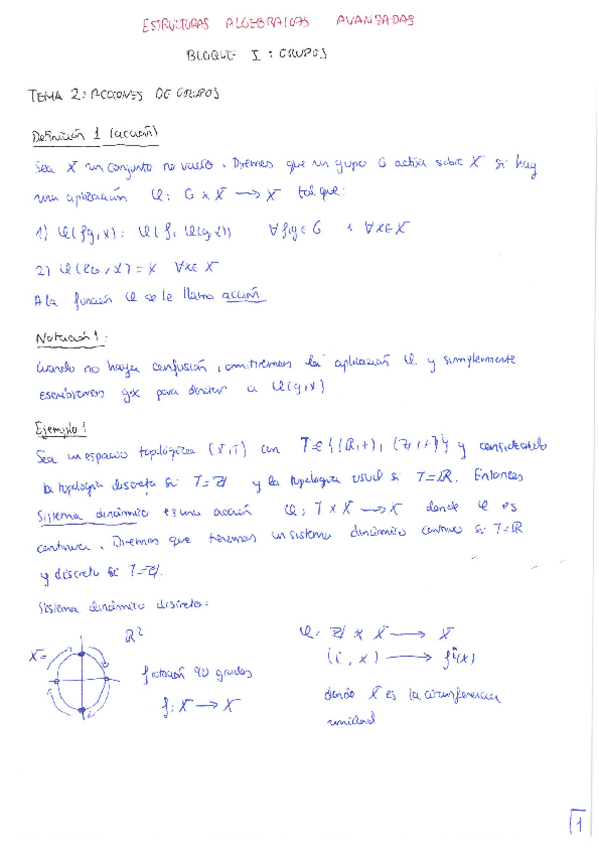 ESTRUCTURAS ALGEBRAICAS AVANZADAS
BLOQUE I: GRUPOS
TEMA 2: ACCIONES DE GRUPOS
Definición 1 (acción)
Sea X un conjunto no vacío. Diremos que un grupo G actúa sobre X si hay
una aplicación φ: G x X → X tal que:
1) φ(fg,x) = φ(f, φ(g,x)) ∀f,g∈G ∀x∈X
2) φ(e_G, x) = x ∀x∈X
A la función φ se le llama acción
Notación 1:
Cuando no haya confusión, omitiremos la aplicación φ y simplemente
escribiremos gx para denotar a φ(g,x)
Ejemplo 1
Sea un espacio topológico (X,τ) con T∈{(ℝ,+), (ℤ,+)} y considerando
la topología discreta si T=ℤ y la topología usual si T=ℝ. Entonces
Sistema dinámico es una acción φ: T x X → X donde φ es
continua. Diremos que tenemos un sistema dinámico continuo si T=ℝ
y discreto si T=ℤ.
Sistema dinámico discreto:
X= ℝ²
f rotación 90 grados
f: X → X
φ: ℤ x X → X
(i, x) → fⁱ(x)
donde X es la circunferencia
unidad
1